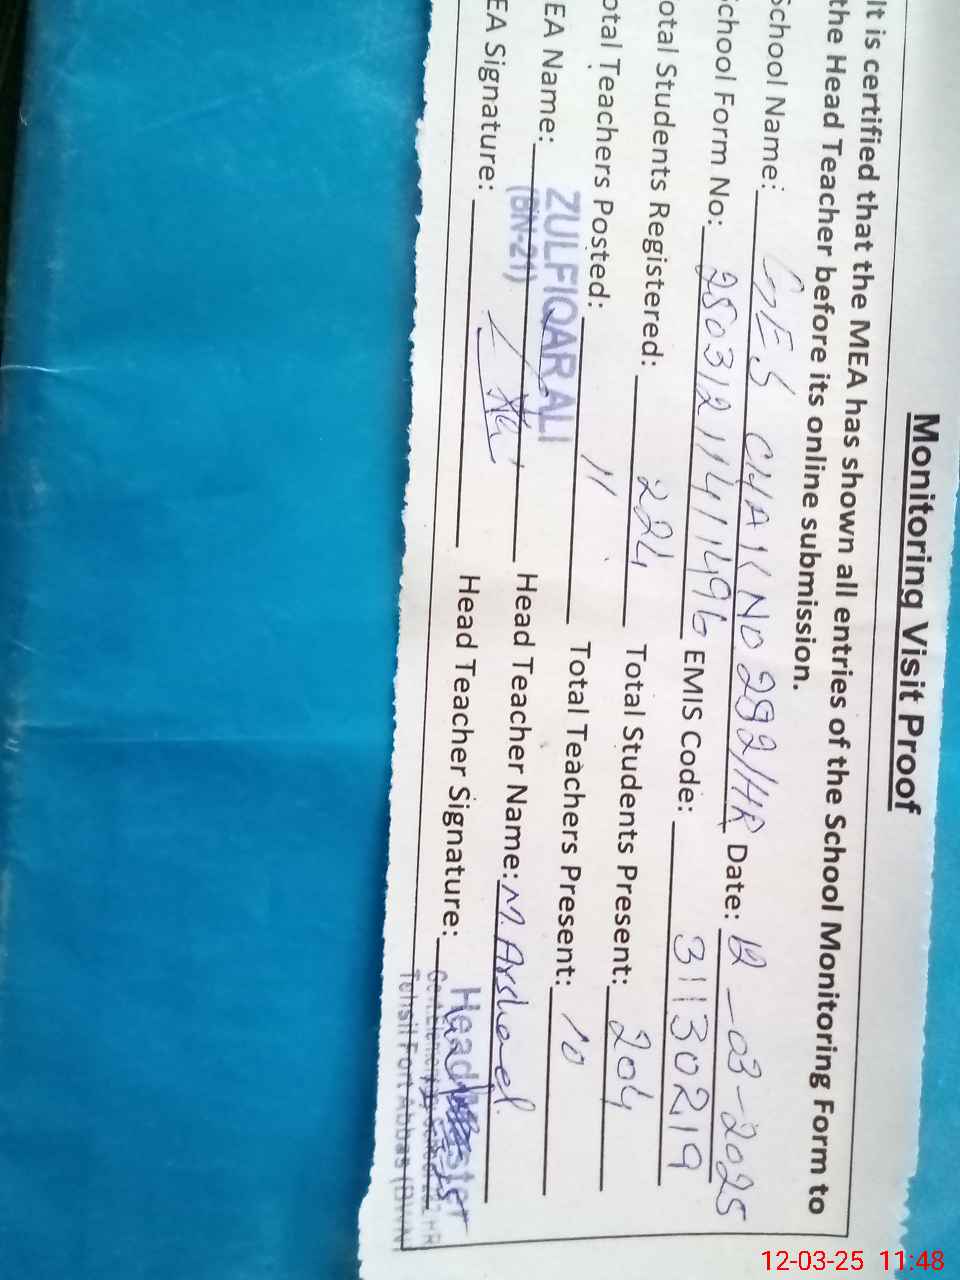 Monitoring Visit Proof
It is certified that the MEA has shown all entries of the School Monitoring Form to
the Head Teacher before its online submission.
School Name: GES CHAK NO 292/HR Date: 12-03-2025
School Form No: 2803121141496 EMIS Code: 31130219
otal Students Registered: 224 Total Students Present: 204
otal Teachers Posted: 11 Total Teachers Present: 10
EA Name: ZULFIQAR ALI (BN-21) Head Teacher Name: M. Arshad
EA Signature: Head Teacher Signature:
Headmaster
Tehsil Fort Abbas (BWN)
12-03-25 11:48